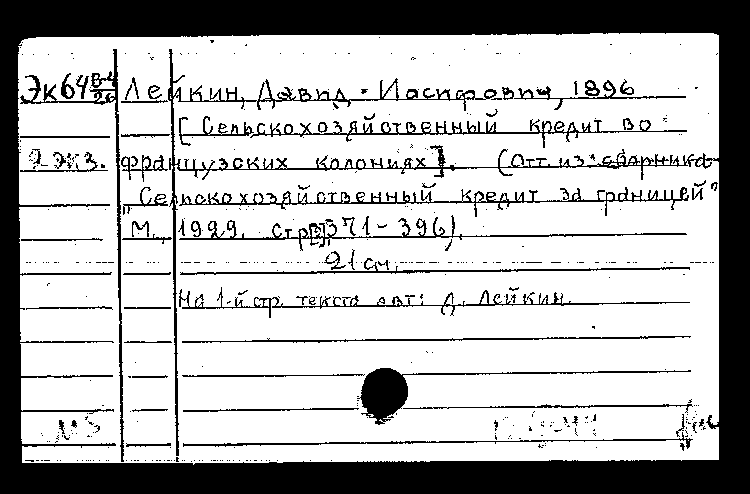 Эк64 В-4/26 Лейкин, Давид Иосифович, 1896
[Сельскохозяйственный кредит во
2 экз. французских колониях]. (Отт. из: сборника
"Сельскохозяйственный кредит за границей"
М., 1929. стр. [2], 371-396).
21 см.
На 1-й стр. текста авт: Д. Лейкин.
М5